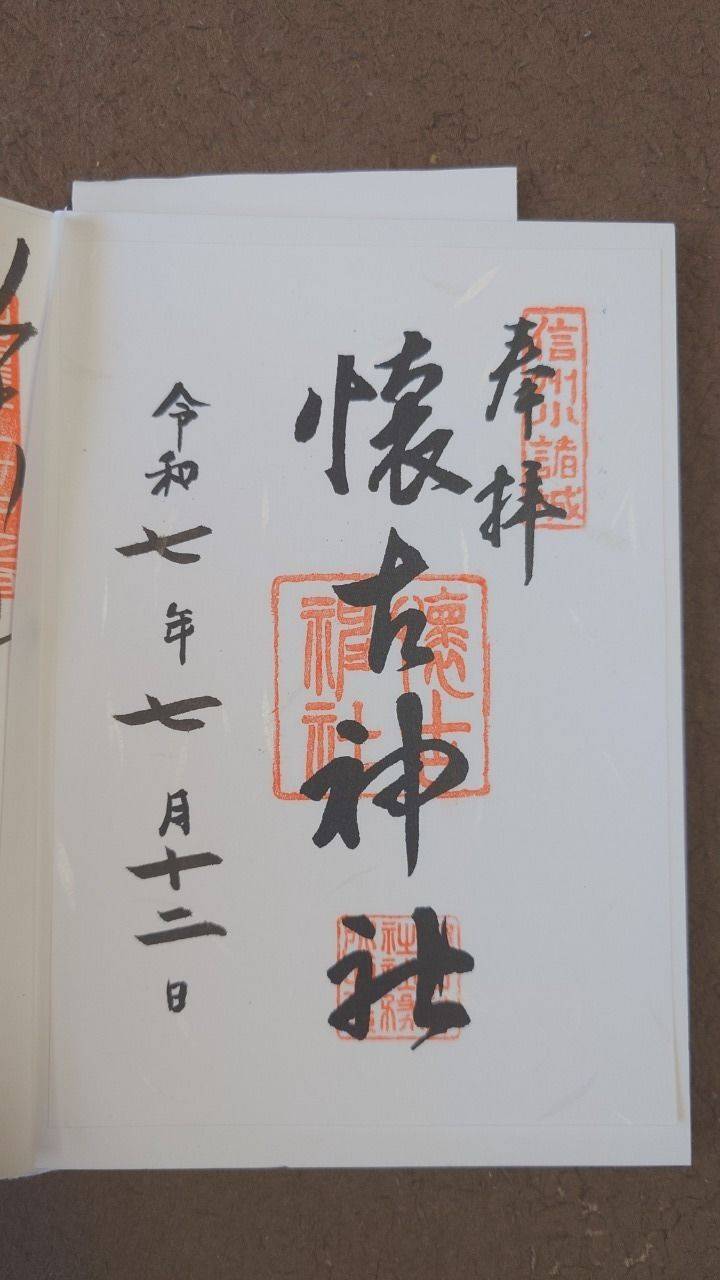 奉拝
信州小諸城
懐古神社
懐古神社
令和七年七月十二日